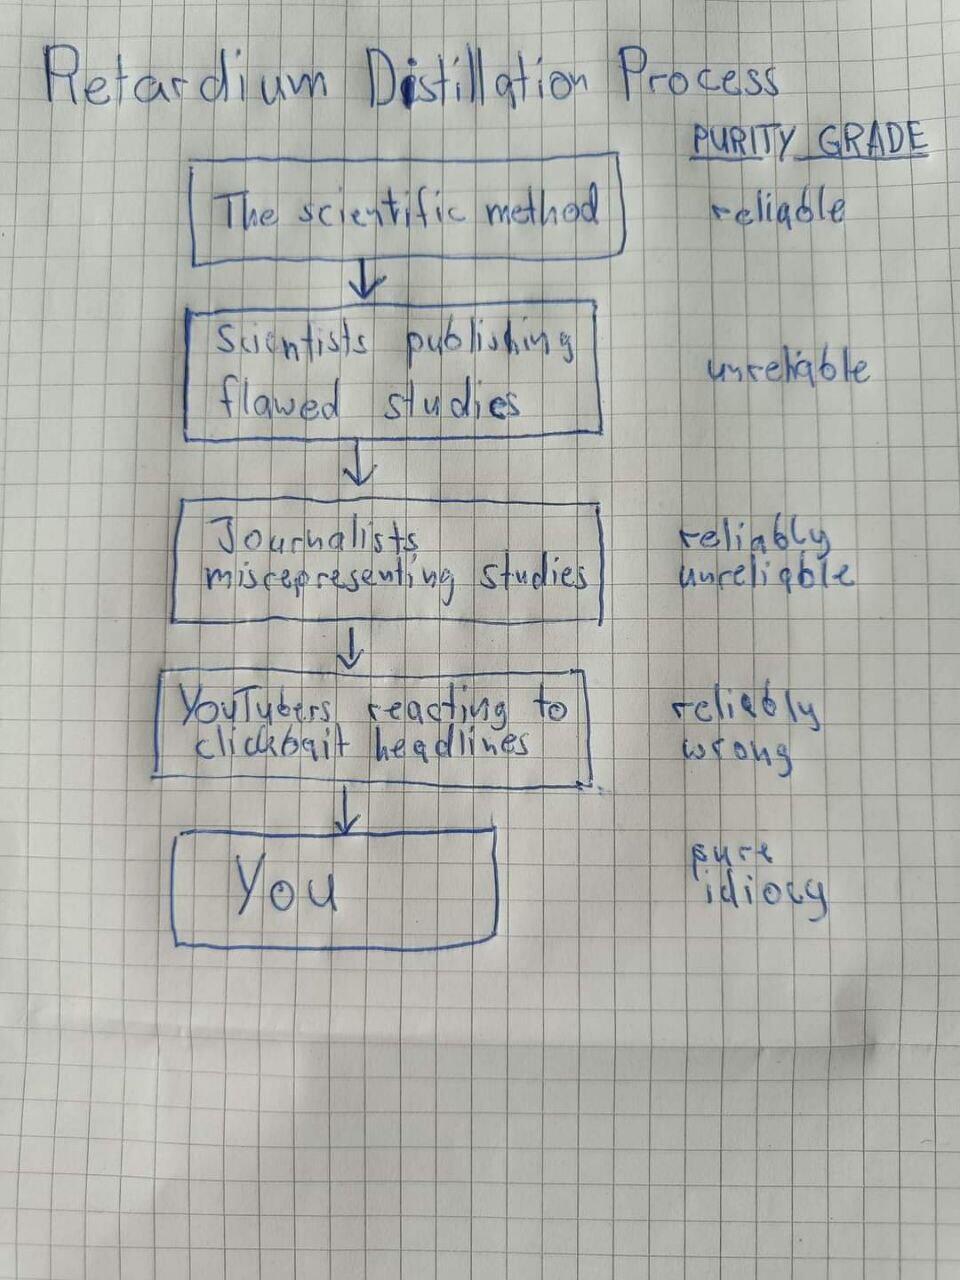 Retardium Distillation Process
PURITY GRADE
The scientific method
reliable
Scientists publishing
flawed studies
unreliable
Journalists
misrepresenting studies
reliably
unreliable
YouTubers reacting to
clickbait headlines
reliably
wrong
You
pure
idiocy